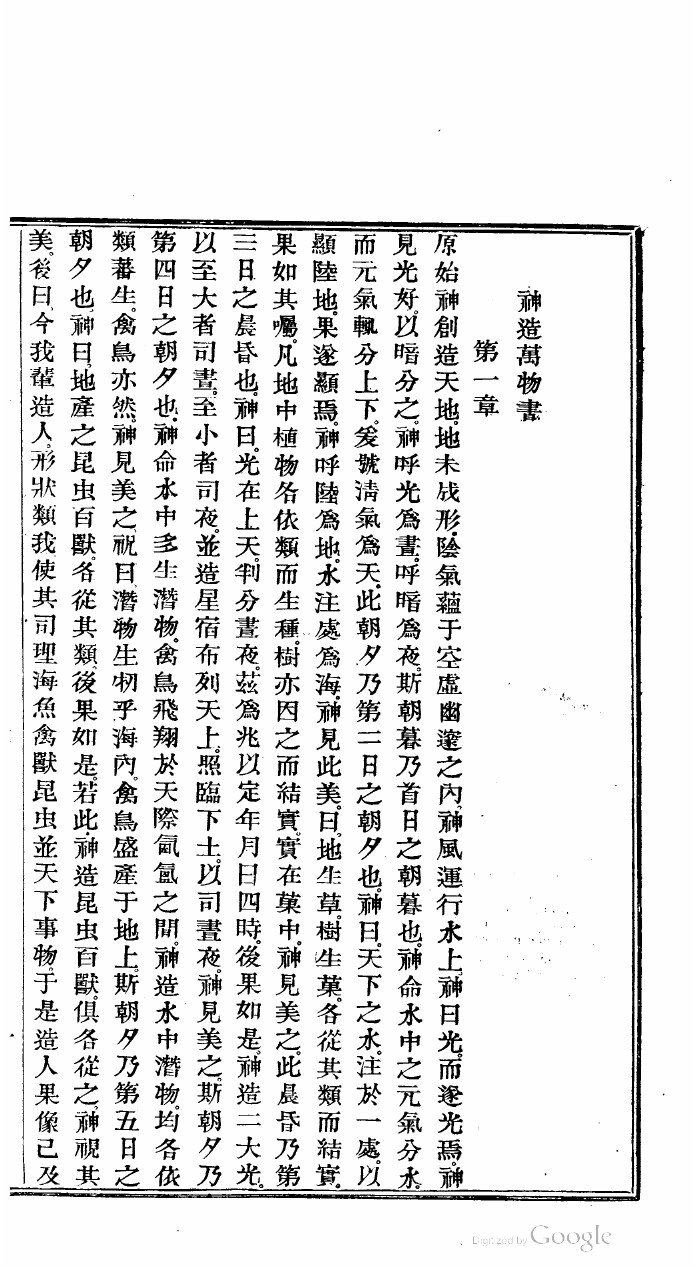 神造萬物書
第一章
原始神創造天地。地未成形。陰氣蘊于空虛幽邃之內。神風運行水上。神曰光。而遂光焉。神
見光好。以暗分之。神呼光爲晝。呼暗爲夜。斯朝暮乃首日之朝暮也。神命水中之元氣分水。
而元氣輒分上下。爰號淸氣爲天。此朝夕乃第二日之朝夕也。神曰。天下之水。注於一處。以
顯陸地。果遂顯焉。神呼陸爲地。水注處爲海。神見此美。曰。地生草。樹生菓。各從其類而結實。
果如其囑。凡地中植物各依類而生種。樹亦因之而結實。實在菓中。神見美之。此晨昏乃第
三日之晨昏也。神曰。光在上天。判分晝夜。茲爲兆以定年月日四時。後果如是。神造二大光。
以至大者司晝。至小者司夜。並造星宿布列天上。照臨下土。以司晝夜。神見美之。斯朝夕乃
第四日之朝夕也。神命水中多生潛物。禽鳥飛翔於天際氤氳之間。神造水中潛物。均各依
類蕃生。禽鳥亦然。神見美之。祝曰。潛物生牣乎海內。禽鳥盛產于地上。斯朝夕乃第五日之
朝夕也。神曰。地產之昆虫百獸。各從其類。後果如是。若此。神造昆虫百獸。俱各從之。神視其
美。後曰。今我輩造人。形狀類我。使其司理海魚禽獸昆虫並天下事物。于是造人果像己及
Digitized by Google